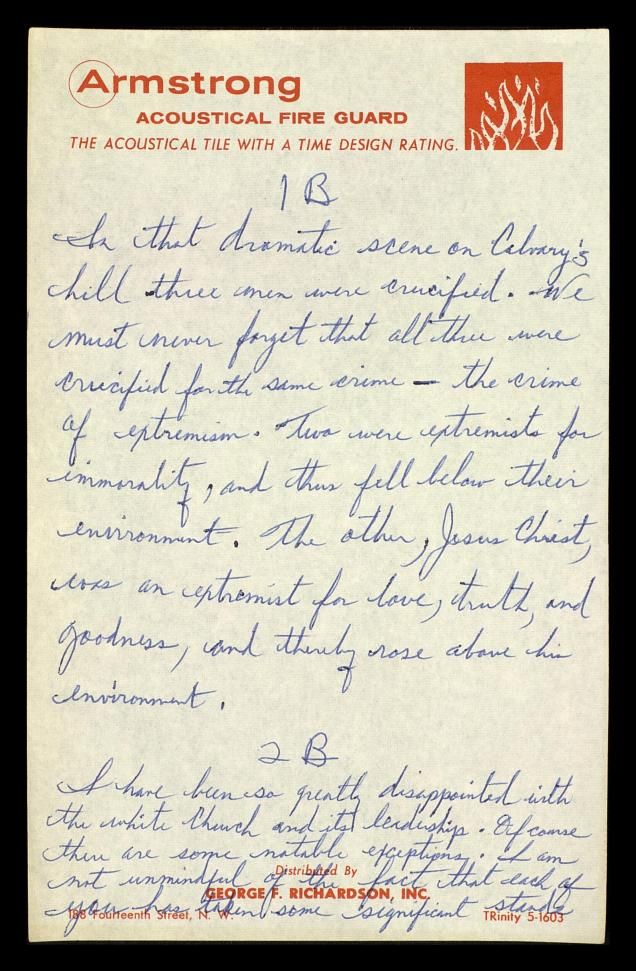 Armstrong
ACOUSTICAL FIRE GUARD
THE ACOUSTICAL TILE WITH A TIME DESIGN RATING.
1 B
In that dramatic scene on Calvary's
hill three men were crucified. We
must never forget that all three were
crucified for the same crime — the crime
of extremism. Two were extremists for
immorality, and thus fell below their
environment. The other, Jesus Christ,
was an extremist for love, truth, and
goodness, and thereby rose above his
environment.
2 B
I have been so greatly disappointed with
the white Church and its leadership. Of course
there are some notable exceptions. I am
Distributed By
not unmindful of the fact that each of
GEORGE F. RICHARDSON, INC.
you has taken some significant stands
188 Fourteenth Street, N. W.
TRinity 5-1603